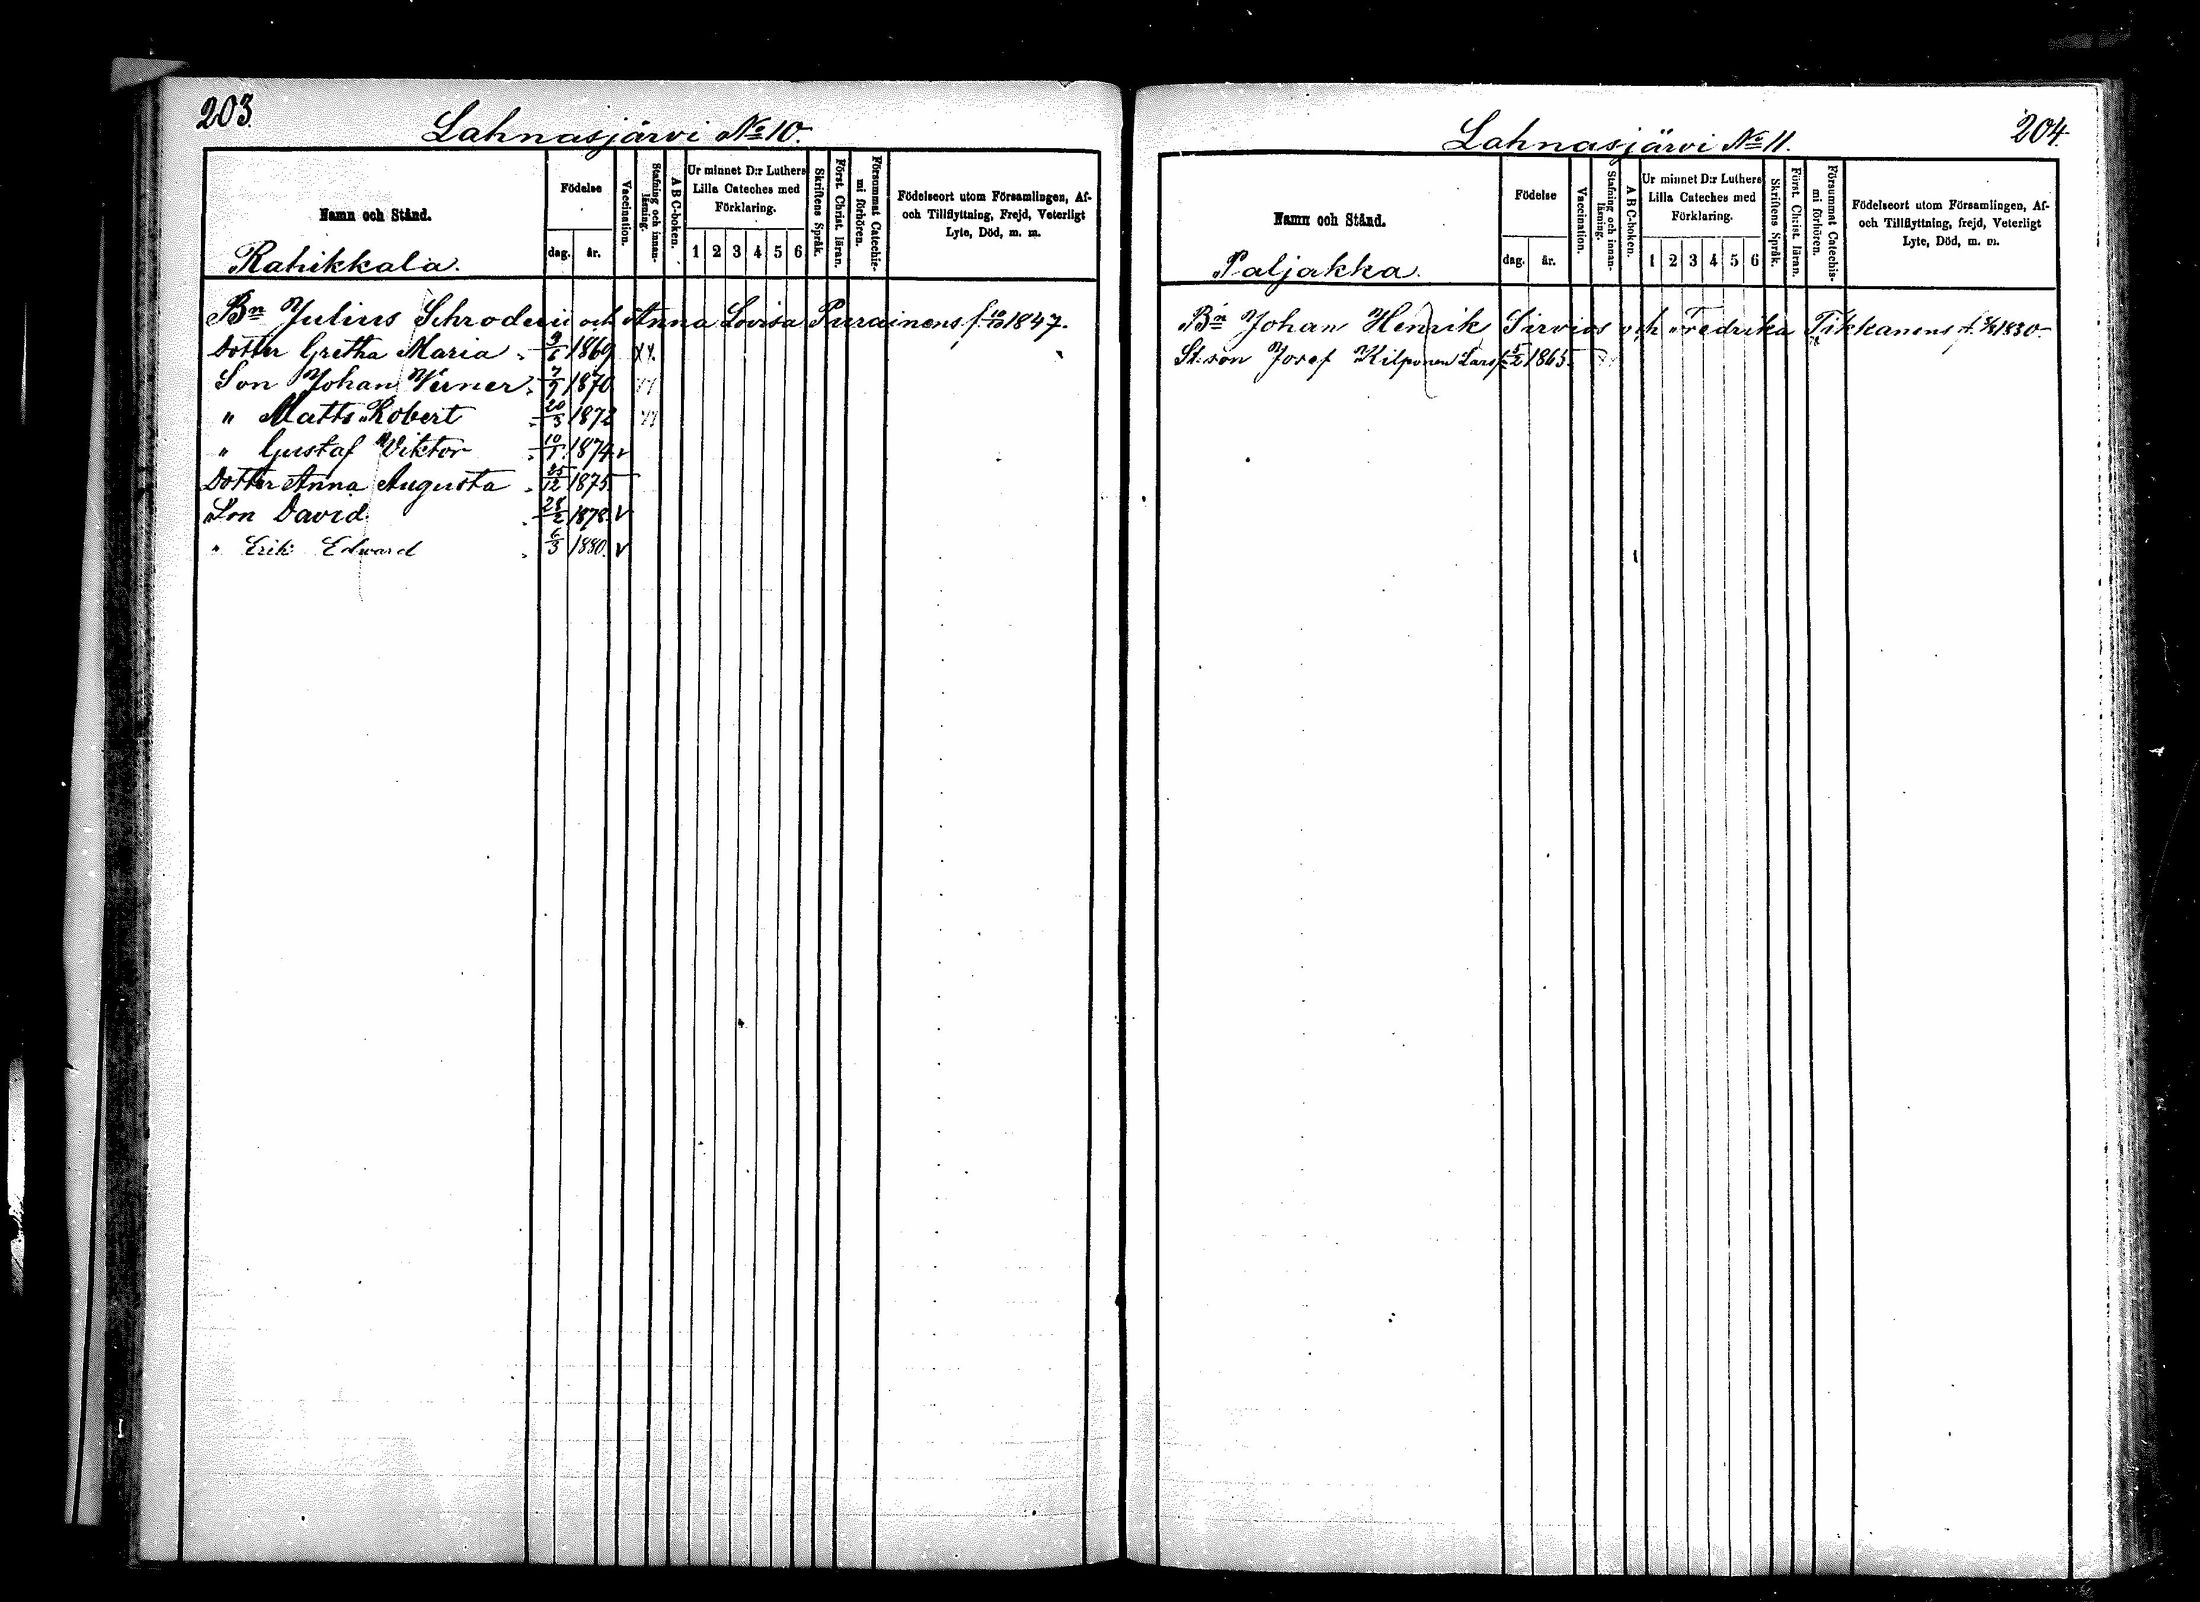 203.
Lahnasjärvi No 10.
Namn och Stånd.
Rahikkala.
Födelse
dag. år.
Vaccination.
Stafning och innanläsning.
A B C-boken.
Ur minnet D:r Luthers
Lilla Cateches med
Förklaring.
1 2 3 4 5 6
Skriftens Språk.
Först. Christ. läran.
Försummat Catechismi förhören.
Födelseort utom Församlingen, Af-
och Tillflyttning, Frejd, Veterligt
Lyte, Död, m. m.
Bn Julius Schroderii och Anna Lovisa Purainens f. 1847.
Dotter Gretha Maria 9/6 1869 XX
Son Johan Verner 7/9 1870
" Matts Robert 20/3 1872
" Gustaf Viktor 10/1 1874 v
Dotter Anna Augusta 25/12 1875
Son David 28/2 1878. v
" Erik Edward 6/3 1880. v
204.
Lahnasjärvi No 11.
Namn och Stånd.
Paljakka.
Födelse
dag. år.
Vaccination.
Stafning och innanläsning.
A B C-boken.
Ur minnet D:r Luthers
Lilla Cateches med
Förklaring.
1 2 3 4 5 6
Skriftens Språk.
Först. Christ. läran.
Försummat Catechismi förhören.
Födelseort utom Församlingen, Af-
och Tillflyttning, frejd, Veterligt
Lyte, Död, m. m.
Bn Johan Henrik Sirviös och Fredrika Tikkanens f. 1830
St. son Josef Kilponen Lars 1865.